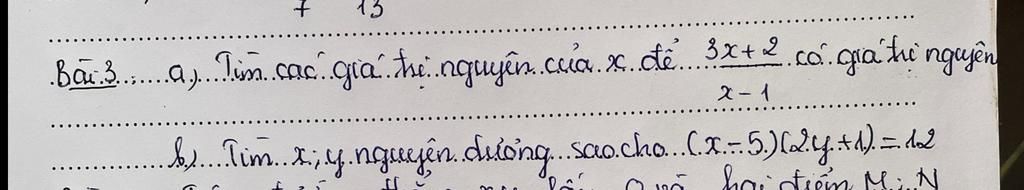 7 13
Bài 3 a) Tìm các giá trị nguyên của x để 3x+2 / x-1 có giá trị nguyên
b) Tìm x; y nguyên dương sao cho (x-5)(2y+1)=12
hai điểm M; N